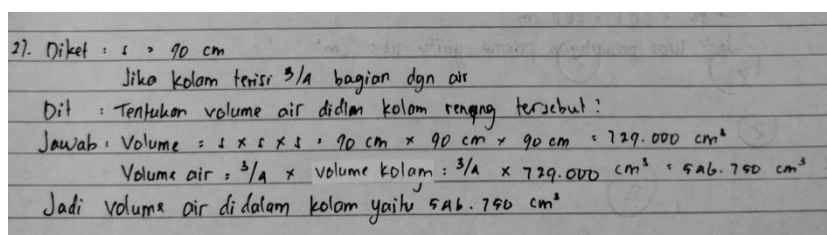 27. Diket : s = 90 cm
Jika kolam terisi 3/4 bagian dgn air
Dit : Tentukan volume air didlm kolam renang tersebut ?
Jawab : Volume = s x s x s = 90 cm x 90 cm x 90 cm = 729.000 cm³
Volume air = 3/4 x volume kolam = 3/4 x 729.000 cm³ = 546.750 cm³
Jadi volume air di dalam kolam yaitu 546.750 cm³